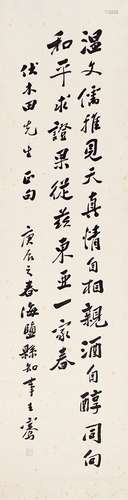 温文儒雅見天真情自相親酒自醇同向
和平求證果從茲東亞一家春
伏木田先生正句 庚辰之春海鹽縣知事王